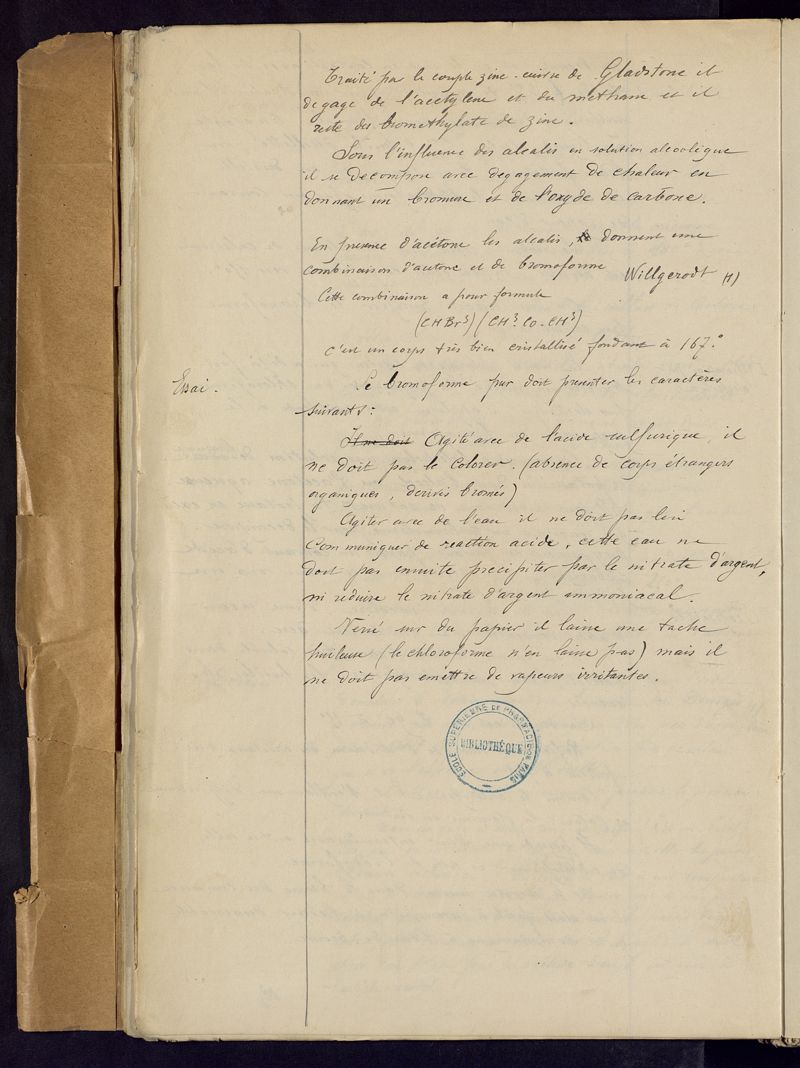 Traité par le couple zinc-cuivre de Gladstone il
degage de l'acetylene et du methane et il
reste des bromethylate de zinc.
Sous l'influence des alcalis en solution alcoolique
il se decompose avec degagement de chaleur en
donnant un bromure et de l'oxyde de carbone.
En presence d'acétone les alcalis, donnent une
combinaison d'acetone et de bromoforme Willgerodt (1)
Cette combinaison a pour formule
(CHBr³) (CH³. Co - CH³)
c'est un corps très bien cristallisé fondant à 167°.
Essai.
Le bromoforme pur doit presenter les caractères
suivants :
Il ne doit Agité avec de l'acide sulfurique, il
ne doit pas le colorer. (absence de corps étrangers
organiques, derivés bromés)
Agiter avec de l'eau il ne doit pas lui
communiquer de reaction acide, cette eau ne
doit pas ensuite precipiter par le nitrate d'argent,
ni reduire le nitrate d'argent ammoniacal.
Versé sur du papier il laisse une tache
huileuse (le chloroforme n'en laisse pas) mais il
ne doit pas emettre de vapeurs irritantes.
ÉCOLE SUPÉRIEURE DE PHARMACIE DE PARIS
BIBLIOTHÈQUE